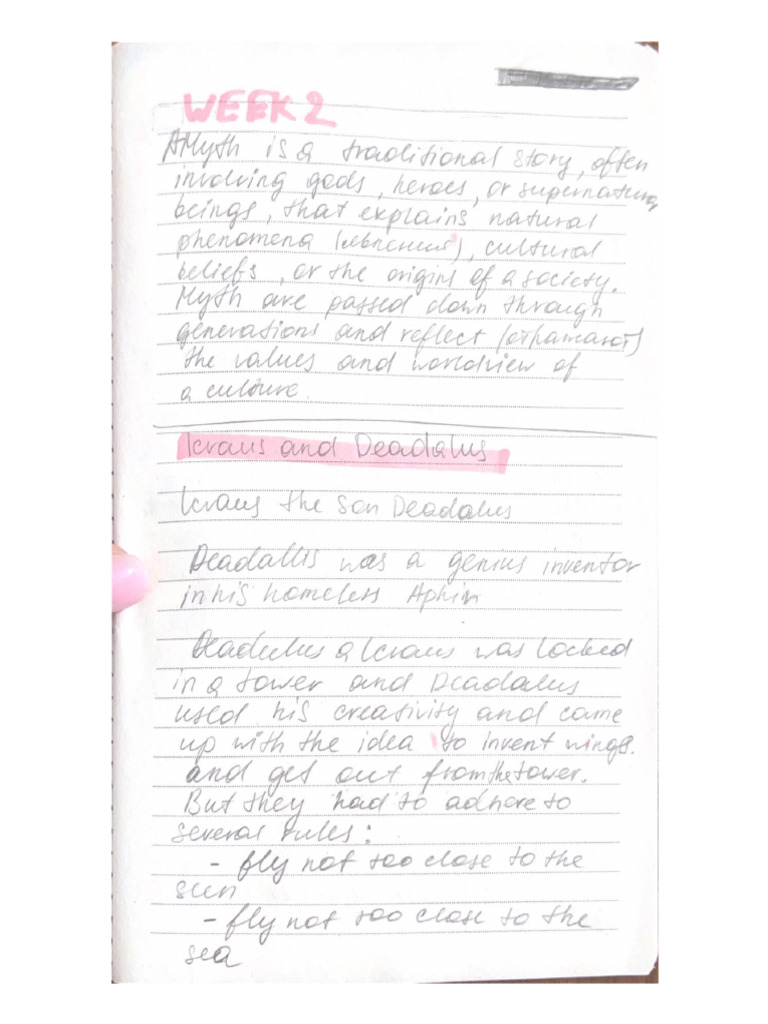 WEEK 2
A Myth is a traditional story, often
involving gods, heroes, or supernatural
beings, that explains natural
phenomena (явления), cultural
beliefs, or the origins of a society.
Myth are passed down through
generations and reflect (отражают)
the values and worldview of
a culture.
Icraus and Deadalus
Icraus the son Deadalus
Deadallis was a genius inventor
in his homeless
Deadelus a Icraus was locked
in a tower and Deadalus
used his creativity and came
up with the idea to invent wings.
and get out from the tower.
But they had to adhere to
several rules:
- fly not too close to the
sun
- fly not too close to the
sea